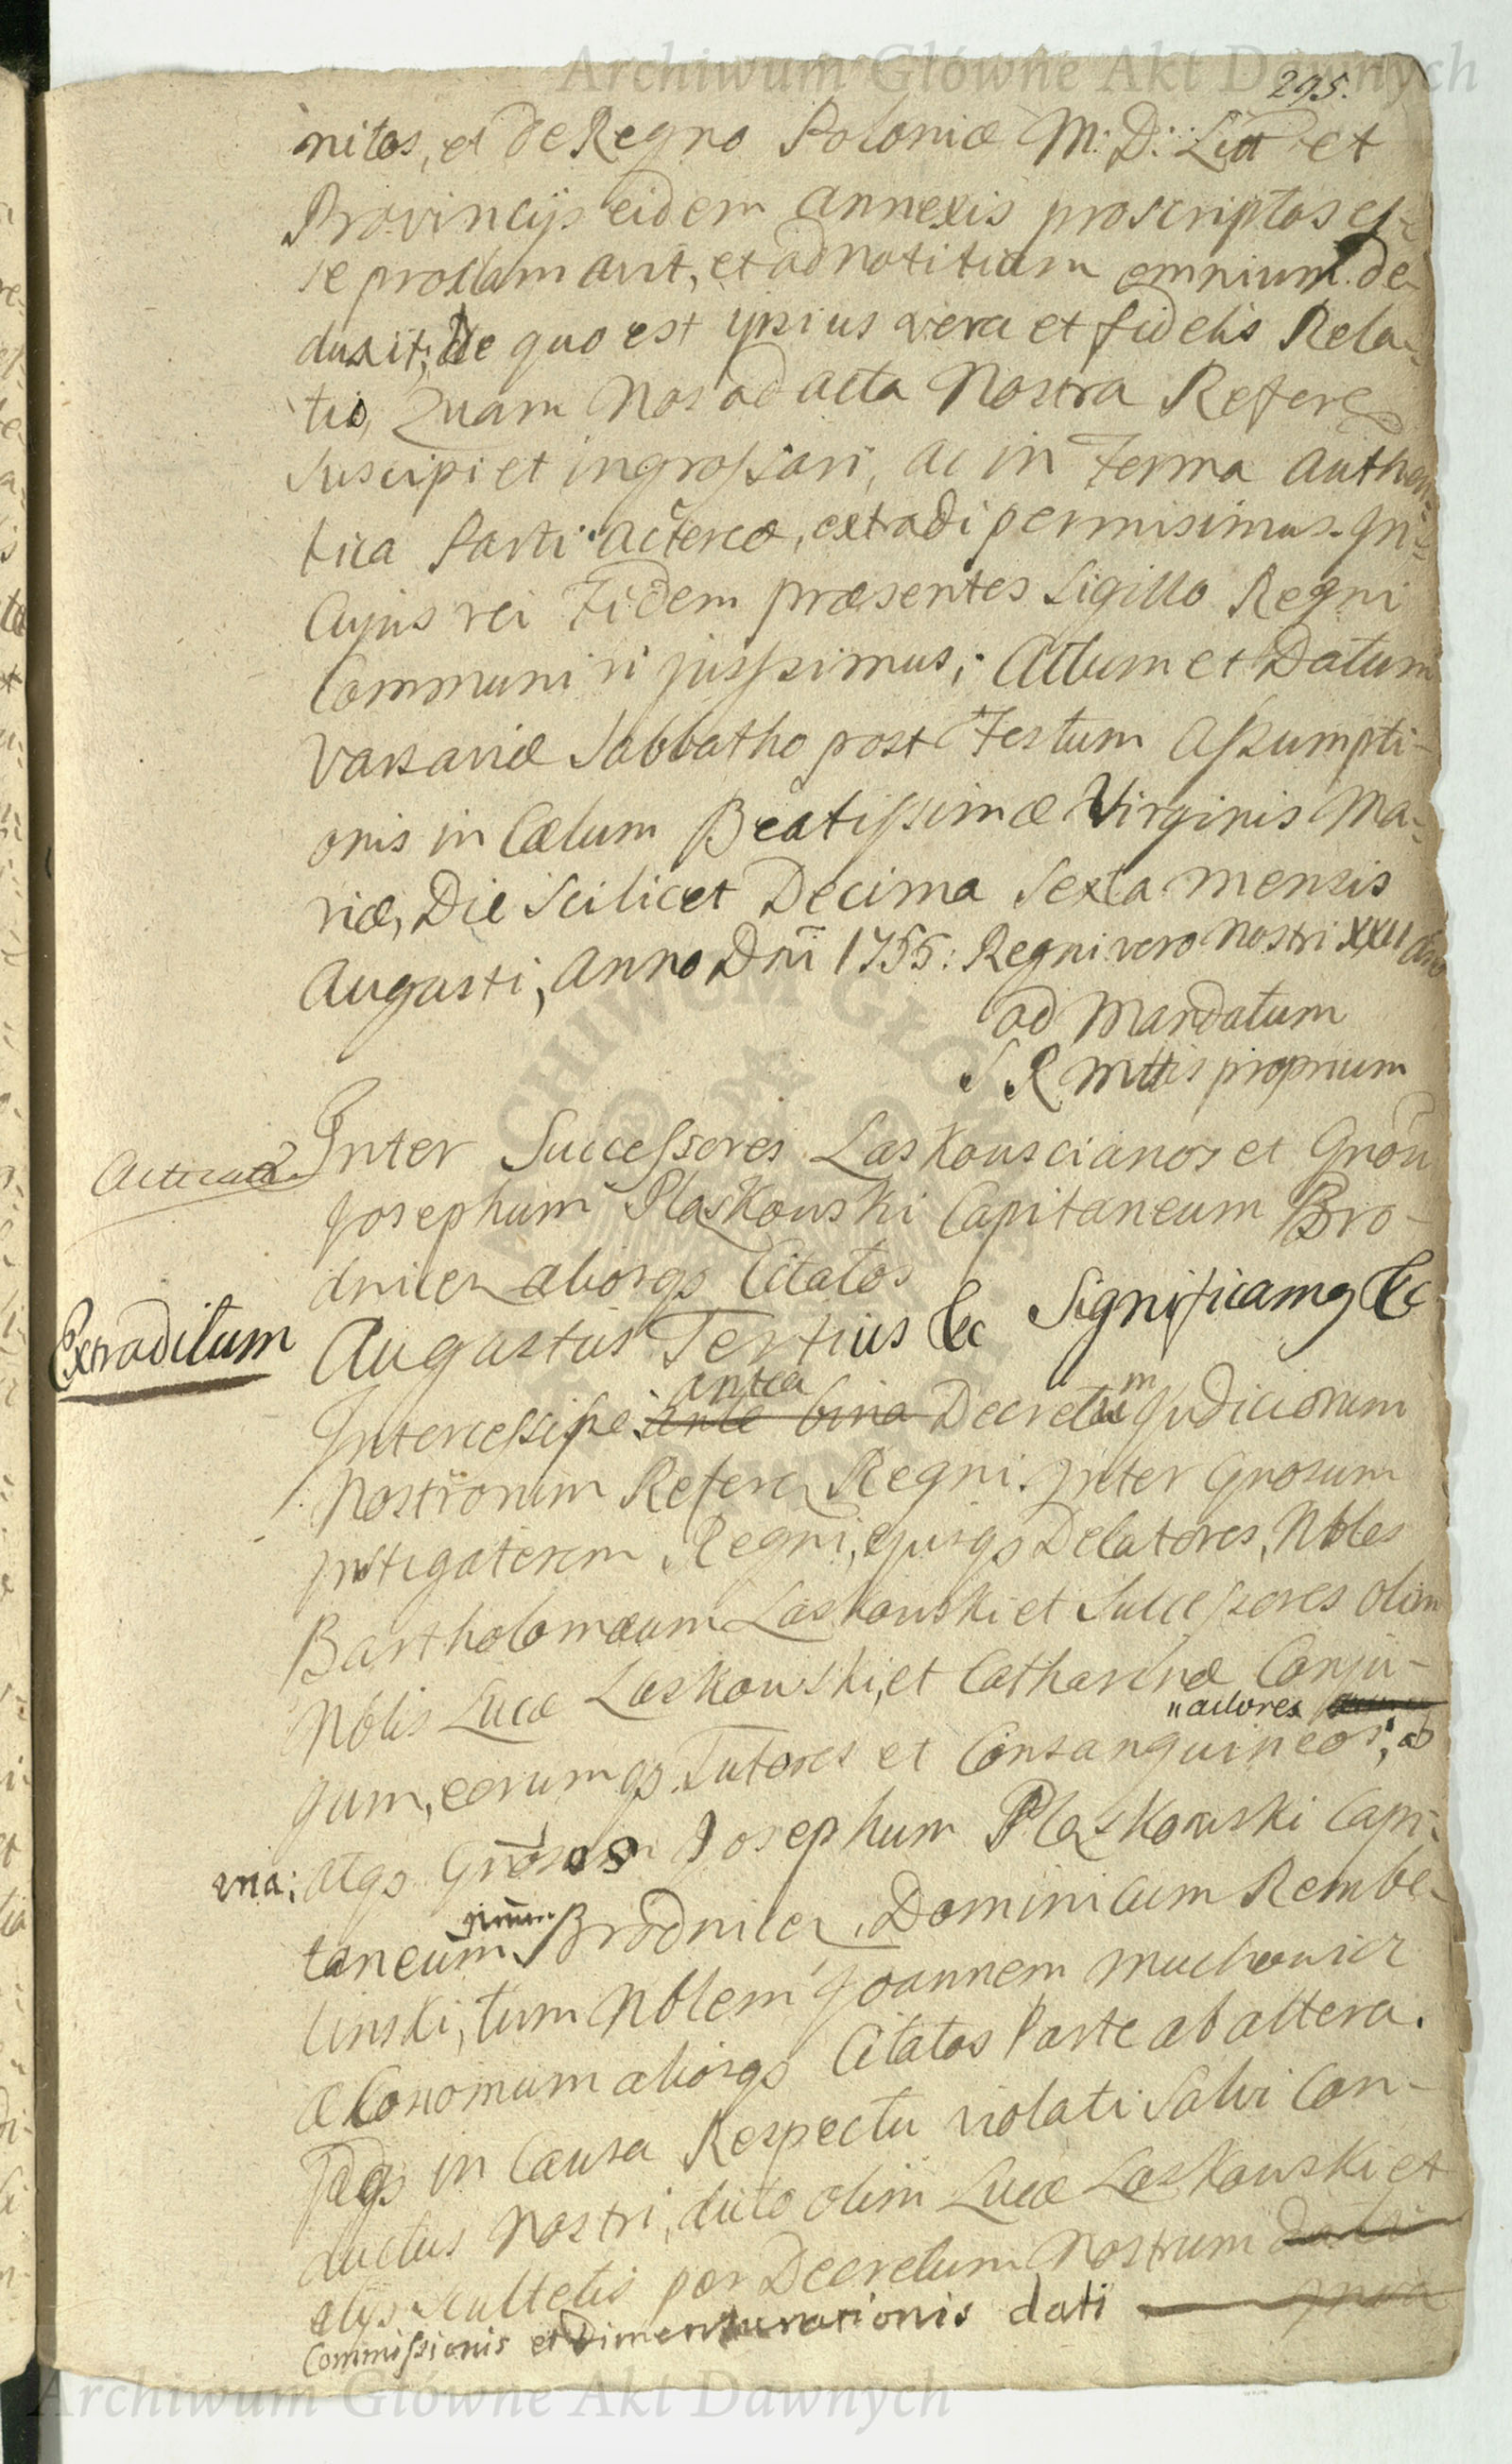 Archiwum Główne Akt Dawnych
295.
nitos, et de Regno Poloniæ M: D: Litt et
Provincijs eidem annexis proscriptos es-
se proclamavit, et ad notitiam omnium de-
duxit; De quo est ipsius vera et fidelis Rela-
tio, Quam Nos ad acta Nostra Referen
suscipi et ingrossari, ac in Forma Authen-
tica Parti Actoreæ, extradi permisimus. In
Cujus rei Fidem præsentes Sigillo Regni
Communiri jussimus; Actum et Datum
Varsaviæ Sabbatho post Festum Assumpti-
onis in Cælum Beatissimæ Virginis Ma-
riæ, Die Scilicet Decima Sexta mensis
Augusti, Anno Dni 1755: Regni vero Nostri XXII Ano
ad Mandatum
S R Mttis proprium
Inter Successores Laskouscianos et Gnõu
Josephum Plaskowski Capitaneum Bro-
dnicen aliosqs Citatos
Extraditum
Augustus Tertius &c Significamg &c
antea
Intercessisse ante bina Decretum Judiciorum
Nostrorum Referen Regni. Inter Gnosum
Instigatorem Regni, ejusqs Delatores, Nbles
Bartholomæum Laskowski et Successores olim
Nblis Lucæ Laskowski, et Catharinæ Conju-
"actores
gum, eorumqs Tutores et Consanguineos; ab
una; atqs Gnosos Josephum Plaskowski Capi-
taneum Brodnicen, Dominicum Rembe-
linski, tum Nblem Joannem Muchowicz
Æconomum aliosqs Citatos Parte ab altera.
Idqs in Causa Respectu violati Salvi Con-
ductus Nostri, dicto olim Lucæ Laskowski et
alijs Scultetis per Decretum Nostrum dati
Commissionis et Dimensurationis dati
Archiwum Główne Akt Dawnych